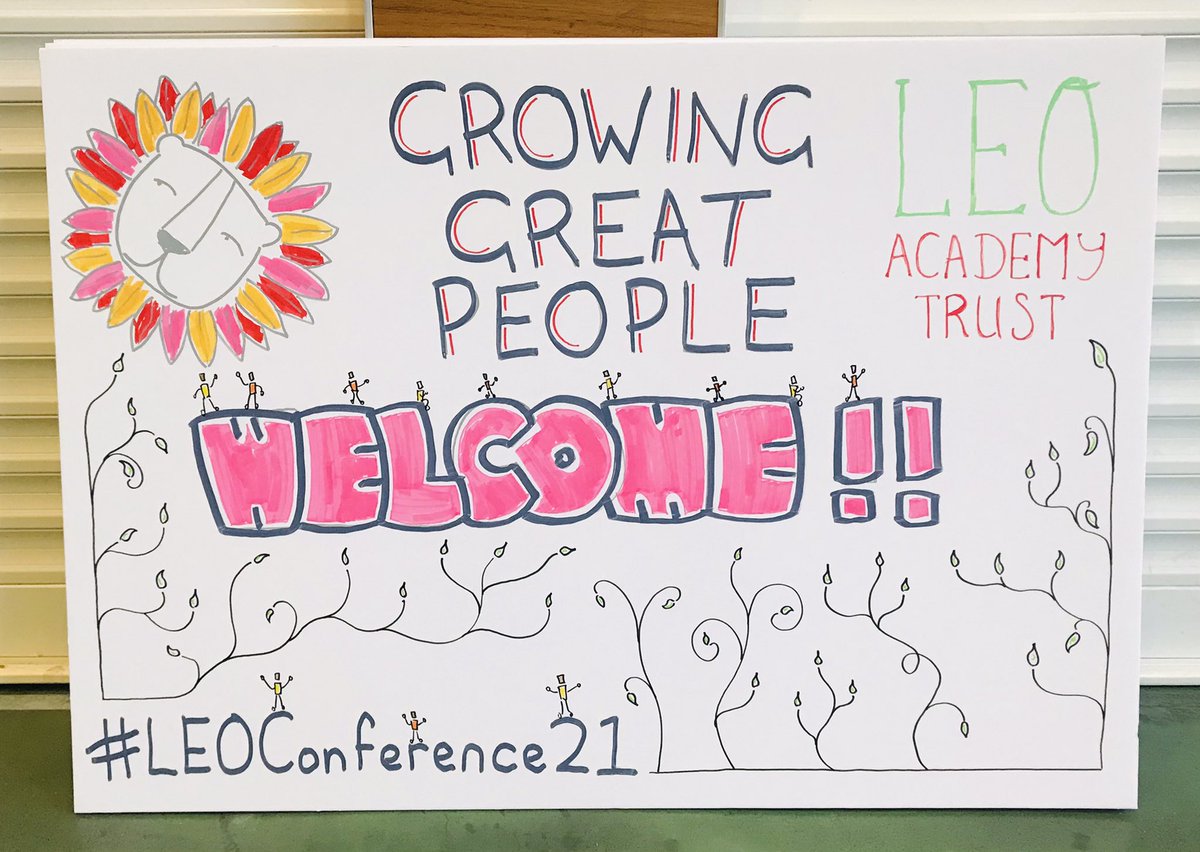 GROWING
GREAT
PEOPLE
LEO
ACADEMY
TRUST
WELCOME!!
#LEOConference21